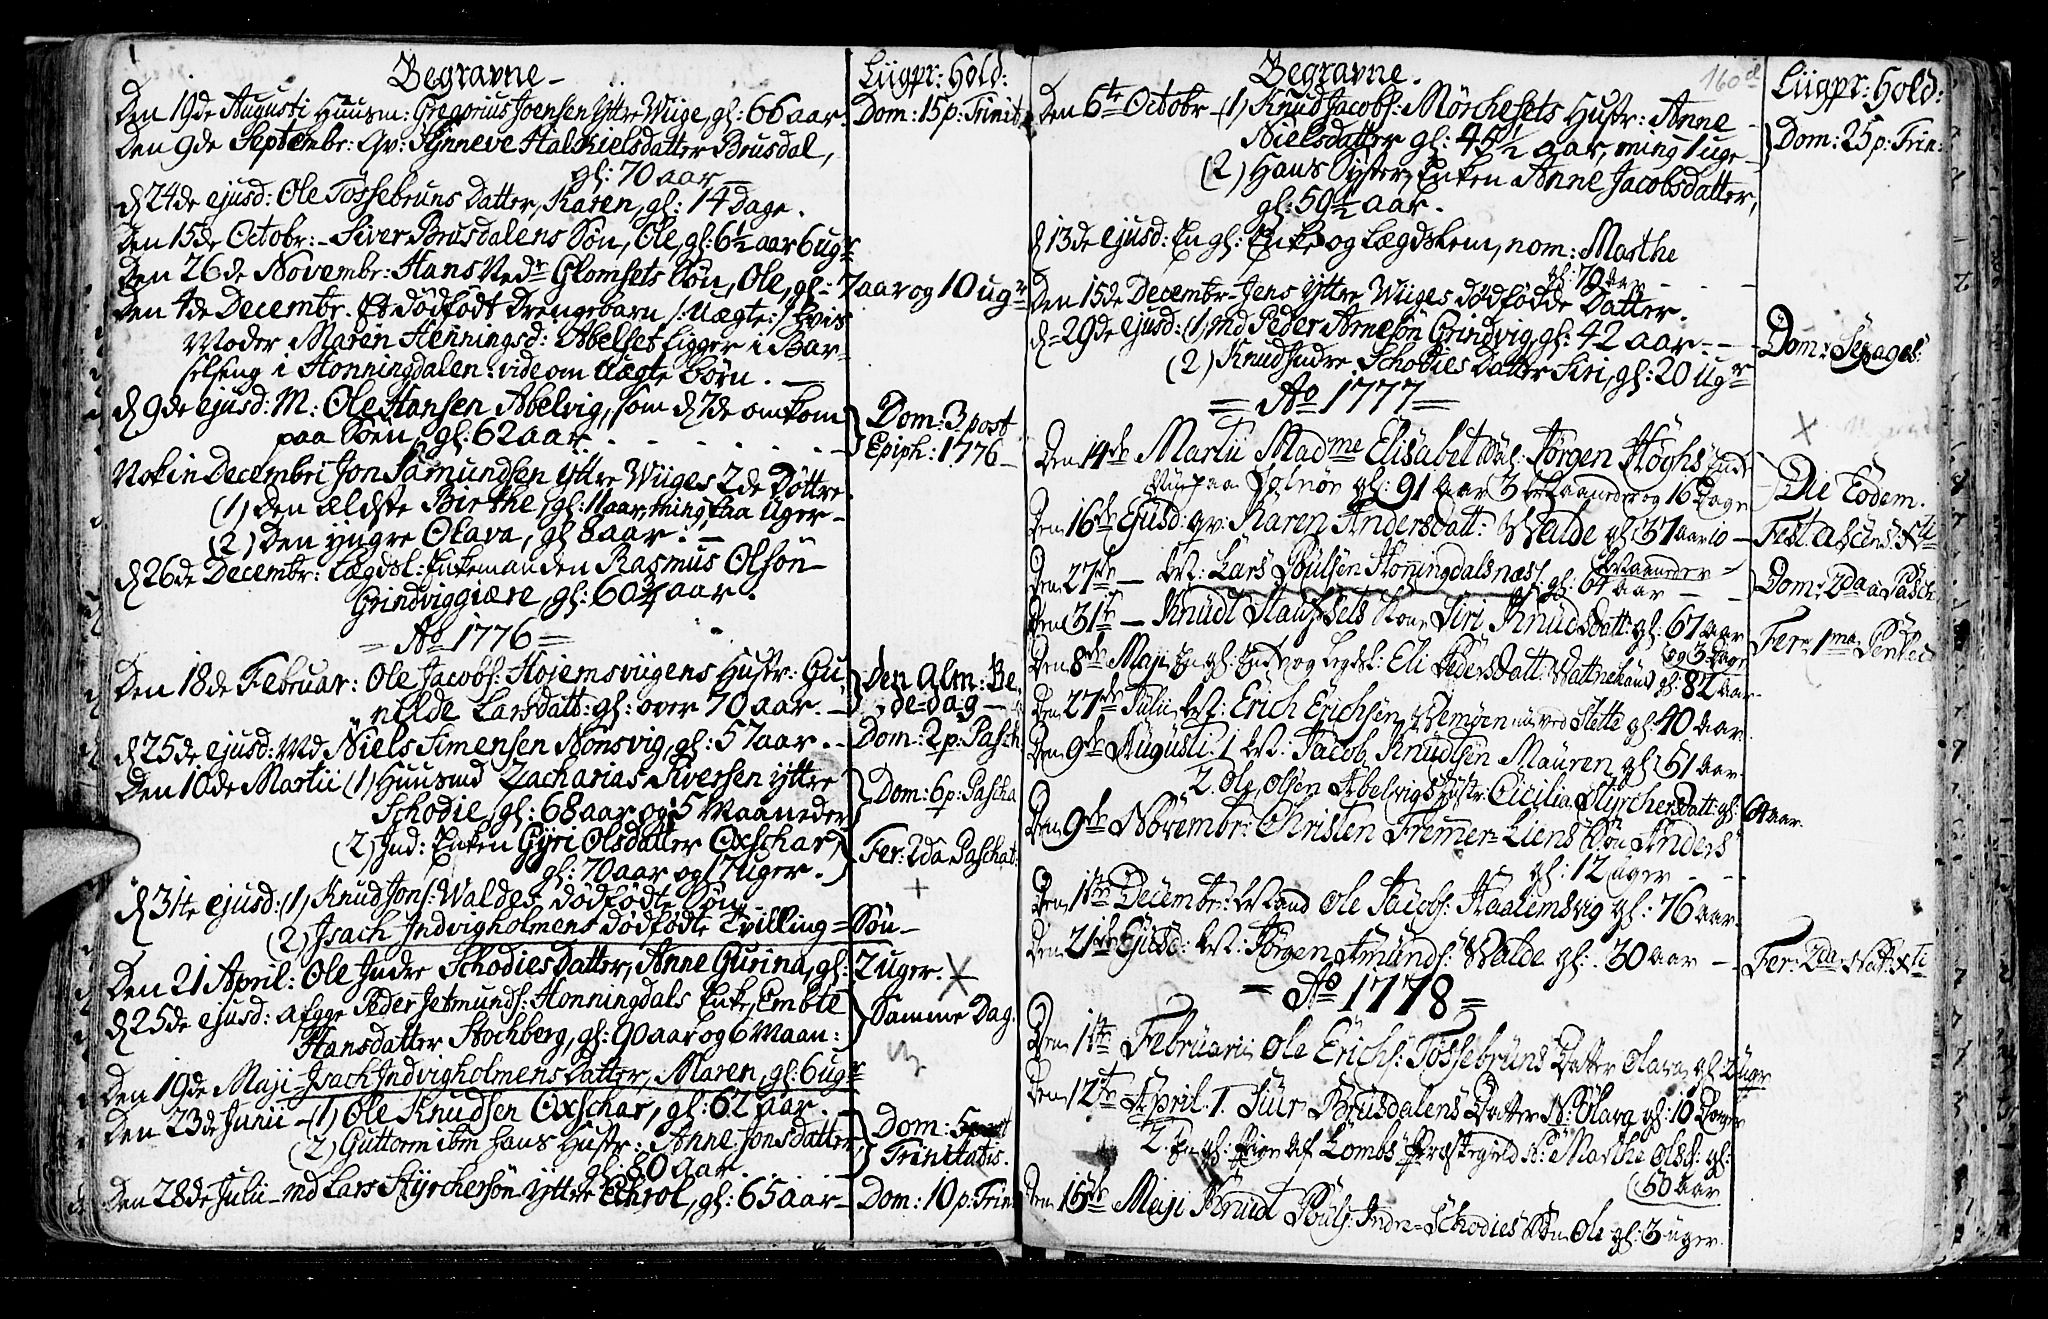 Begravne
Liigpr: Hold:
Den 19de Augusti Huusm: Gregorius Joensen Yttre Wiige, gl: 66 aar.
Dom: 15 p: Trinit
Den 9de Septembr: Qv: Synneve Halskielsdatter Brusdal,
gl: 70 aar
d 24de ejusd: Ole Tössebruns Datter, Karen, gl: 14 Dage.
Den 15de Octobr: Siver Brusdalens Sön, Ole, gl: 6½ aar 6 ugr
Den 26de Novembr: Hans Nedr Glomsets Sön, Ole, gl: 7 aar og 10 ugr
Den 4de Decembr. Et dödfödt Drengebarn /: Uægte :/ hvis
Moder Maren Henningsd: Abelset ligger i Bar-
selseng i Honningdalen. vide om Uægte Börn.
d 9de ejusd: M: Ole Hansen Abelvig, som d 7de omkom
paa Söen, gl: 62 aar.
Dom: 3 post
Epiph: 1776
Nok in Decembri Jon Samundsen Yttre Wiiges 2de Döttre
(1) Den ældste Birthe, gl: 11 aar, ming, faa Uger
(2) Den yngre Olava, gl: 8 aar.
d 26de Decembr: Lægdsl: Enkemanden Rasmus Olsön
Grindviggiære, gl: 60¾ aar.
= Ao 1776 =
Den 18de Februar: Ole Jacobs: Hojemsviigens Hustr: Gu-
nilde Larsdatt: gl: over 70 aar.
Den Alm: Be-
de-dag
d 25de ejusd: Md Niels Simensen Nonsvig, gl: 57 aar.
Dom: 2 p: Pasch
Den 10de Martii (1) Huusmd Zacharias Siversen Yttre
Schodie, gl: 68 aar og 5 Maaneder
Dom: 6 p: Pascha
(2) Ind: Enken Gyri Olsdatter Oxschar,
gl: 70 aar og 17 uger.
Fer: 2da Paschat:
d 31te ejusd: (1) Knud Jons: Waldes dödfödte Sön
(2) Isach Indvigholmens Dödfödte Tvilling = Sön
Den 21 April: Ole Indre Schodies Datter, Anne Gurina, gl: 2 uger.
d 25de ejusd: afgge Peder Jetmunds: Honningdals Enke, Embte
Hansdatter Stochberg, gl: 90 aar og 6 Maan:
Samme Dag.
Den 19de Maji Isach Indvigholmens Datter, Maren, gl: 6 ugr
Den 23de Junii (1) Ole Knudsen Oxschar, gl: 62 aar.
(2) Guttorm ibm hans Hustr: Anne Jonsdatter,
gl: 80 aar.
Dom: 5
Trinitatis.
Den 28de Julii Md Lars Styrchersön Yttre Echrol, gl: 65 aar
Dom: 10 p: Trin
Begravne.
160 d
Liigpr: Hold:
Den 6te Octobr (1) Knud Jacobs: Mörchesets Hustr: Anne
Nielsdatter gl: 45½ aar, ming 1 uge
Dom: 25 p: Trin:
(2) Hans Syster, Enken Anne Jacobsdatter,
gl: 59½ aar.
d 13de ejusd: En gl: Enke og Lægdslem, nom: Marthe
gl: 70 aar
Den 15de Decembr Jens Yttre Wiiges dödfödde Datter.
d 29de ejusd: (1) Md Peder Arnesön Grindvig, gl: 42 aar.
Dom: Sexages:
(2) Knud Indre Schodies Datter Siri, gl: 20 ugr
= Ao 1777 =
Den 14de Martii Madme Elisabet Sal: Jörgen Höghs Enke
paa Solnör gl: 91 aar 3 Maaneder og 16 Dage
Die Eodem.
Den 16de Ejusd: qv: Karen Andersdatt: Walde gl: 37 aar 10
Maaneder
Fest: Ascens: Xti
Den 27de M: Lars Poulsen Honingdalsnæs: gl: 64 aar
Dom: 2da a Pasch
Den 31te Knudt Hauchsets Kone Siri Knudsdatt: gl: 67 aar
og 3 Dage
Fer: 1ma Pentec
Den 8de Maji En gl: Enke og Legdsl: Eli Pedersdatt: Wattnehaus gl: 82 aar
Den 27de Julii M: Erich Erichsen Wemöen ved Slette gl: 40 aar.
Den 9de Augusti 1. M: Jacob Knudsen Mauren gl: 51 aar.
2. Ole Olsön Abelvigs Hustr: Cicilia Styrchersdatt: gl: 64 aar.
Den 9de Novembr: Christen Fremer-Liens Sön Anders
gl: 12 uger
Den 1ste Decembr: M Land Ole Jacobs: Haalemsvig gl: 76 aar.
Den 21de Ejusd: M: Jörgen Amunds: Walde gl: 30 aar
Fer: 2da Nat: Xti
= Ao 1778 =
Den 1ste Februarii Ole Erichs: Tössebruns Datter Olava gl: 2 ugr
Den 12te April 1. Siur Brusdalens Datter N: Olava gl: 10 Dage
2. En gl: Pige af Lombs Præstegield N: Marthe Olsd: gl:
50 aar
Den 16de Maji Knud Pouls: Indre-Schodies Sön Ole gl: 3 uger.